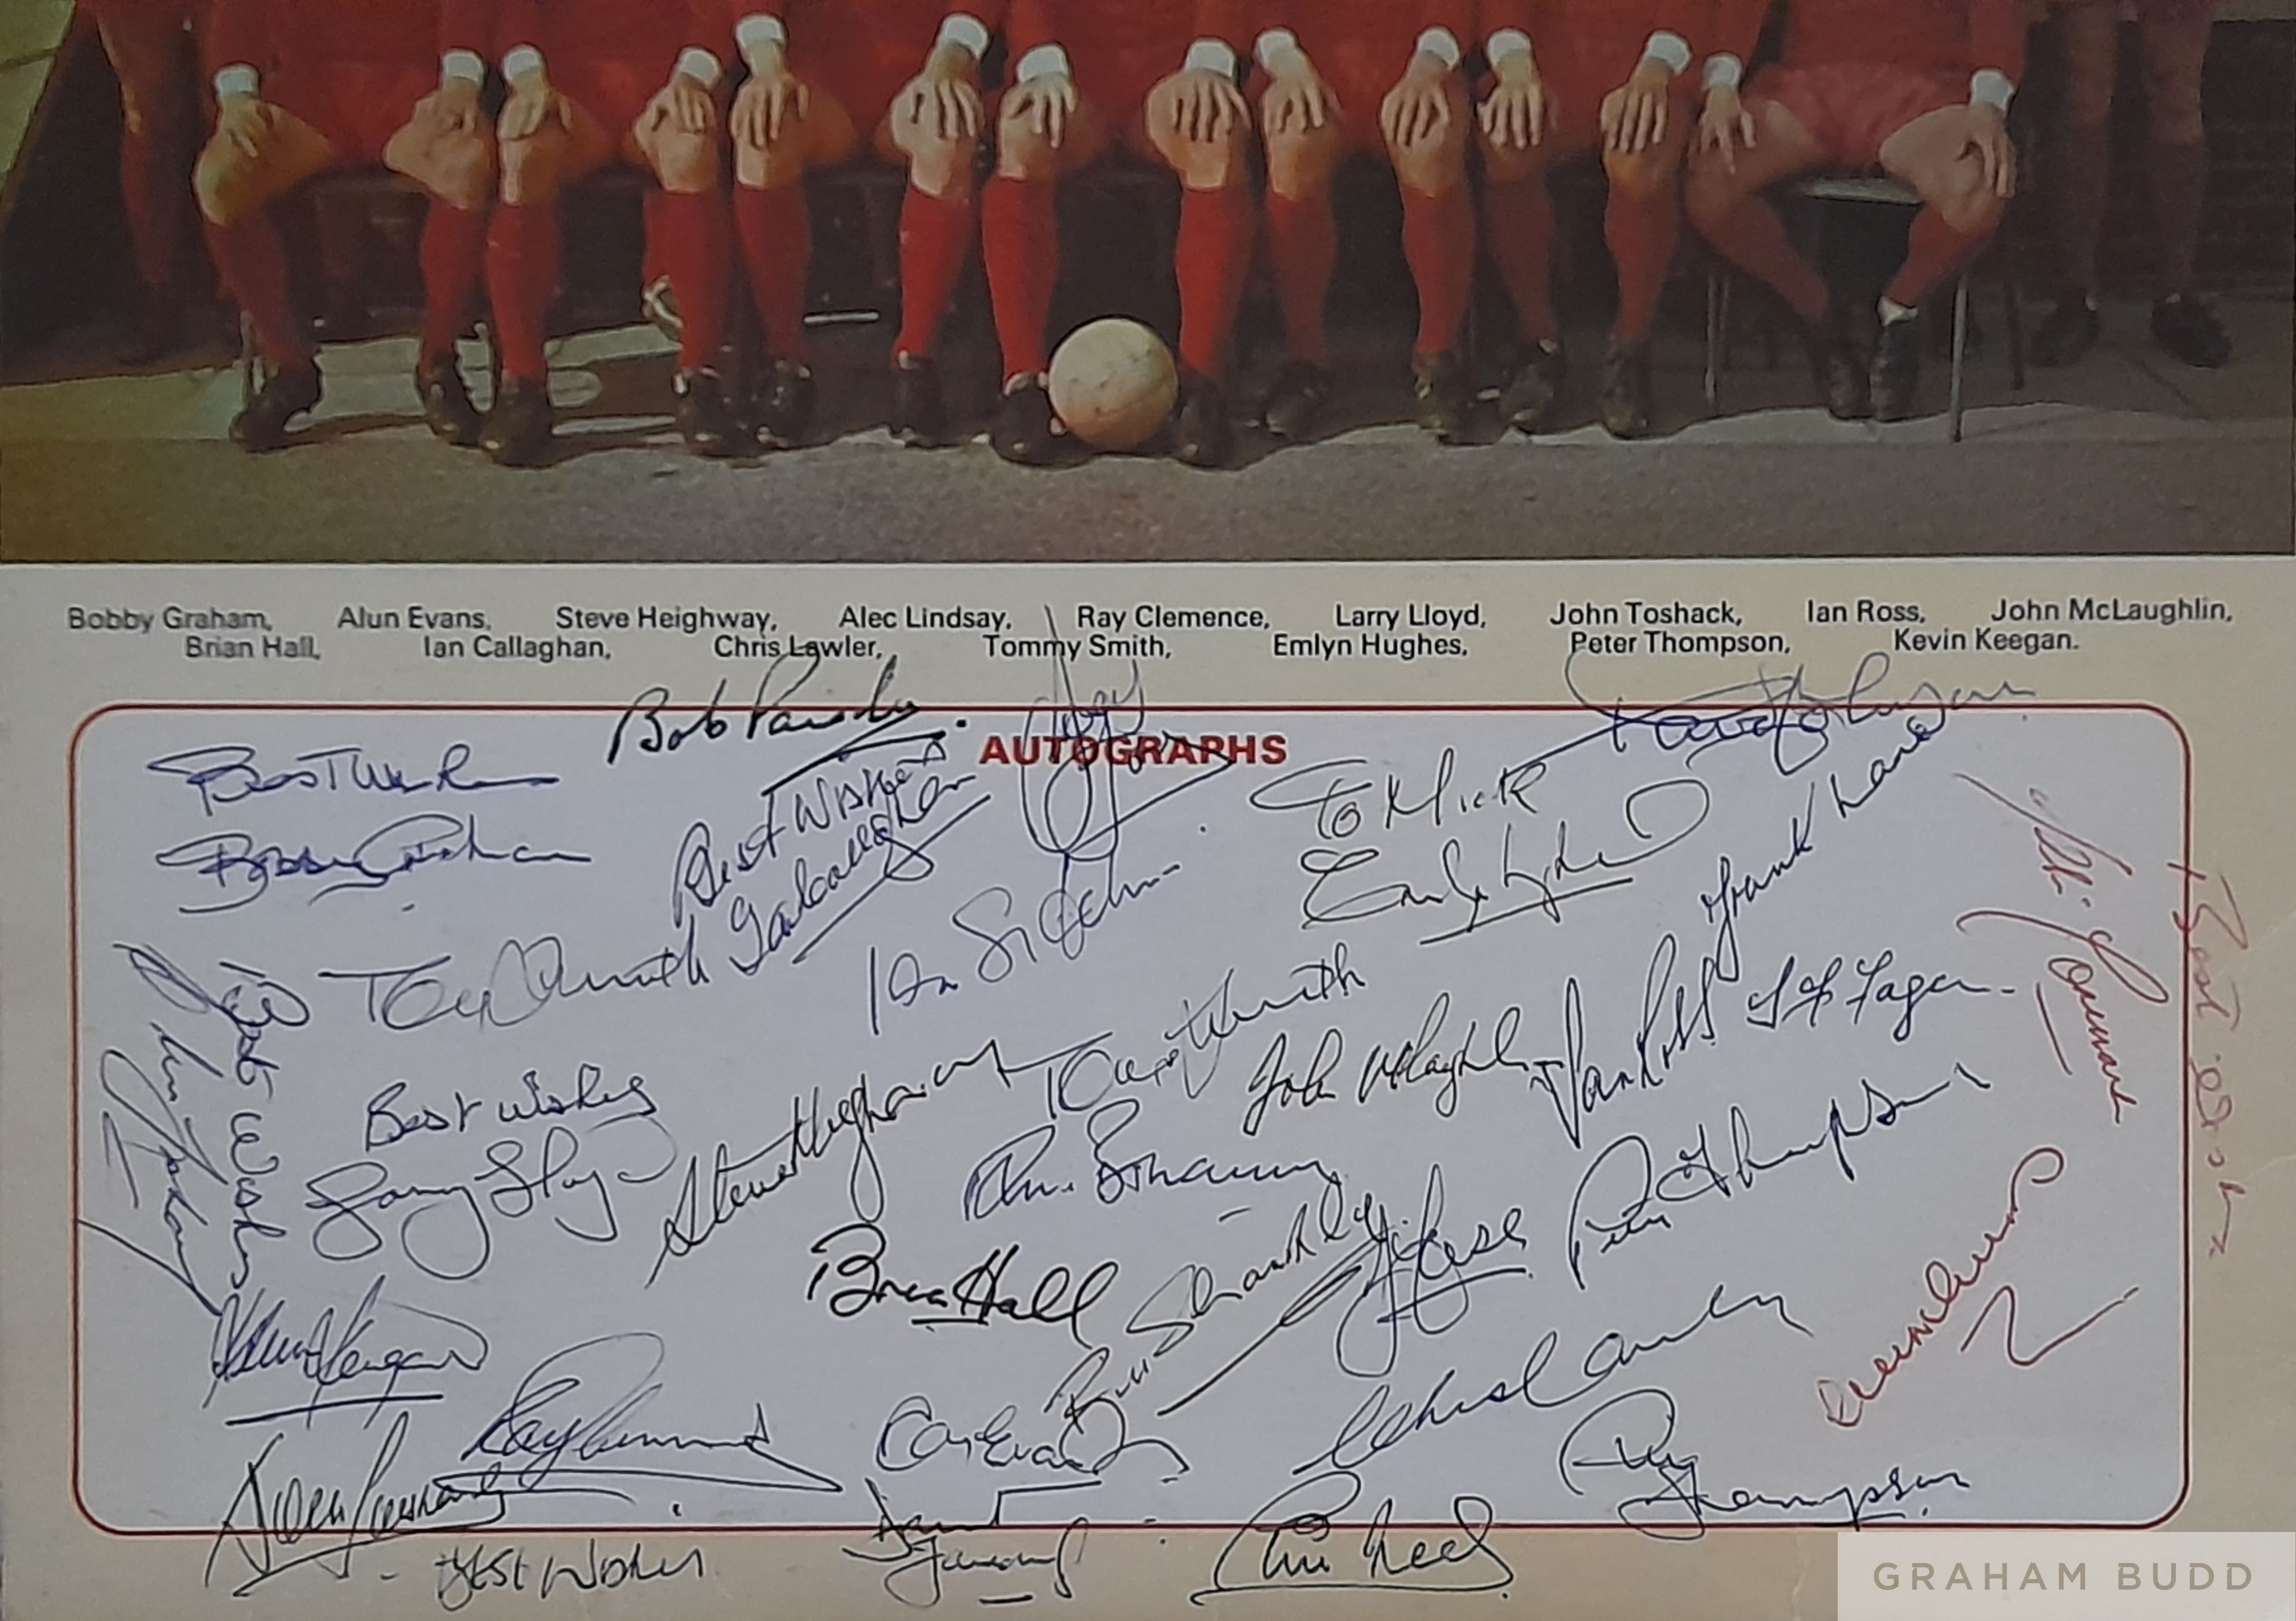 Bobby Graham, Alun Evans, Steve Heighway, Alec Lindsay, Ray Clemence, Larry Lloyd, John Toshack, Ian Ross, John McLaughlin,
Brian Hall, Ian Callaghan, Chris Lawler, Tommy Smith, Emlyn Hughes, Peter Thompson, Kevin Keegan.
AUTOGRAPHS
Bob Paisley
Best Wishes
Bobby Graham
Best Wishes
Ian Callaghan
To Mick
Emlyn Hughes
Frank Lane
Tommy Smith
Ian St John
Best Wishes
John Toshack
Best Wishes
Larry Lloyd
Steve Heighway
Tommy Smith
John McLaughlin
Ian Ross
J F Fagan
Best Wishes
Peter Thompson
Brian Hall
Bill Shankly
Kevin Keegan
Ray Clemence
Chris Lawler
Phil Thompson
Alec Lindsay
Best Wishes
GRAHAM BUDD